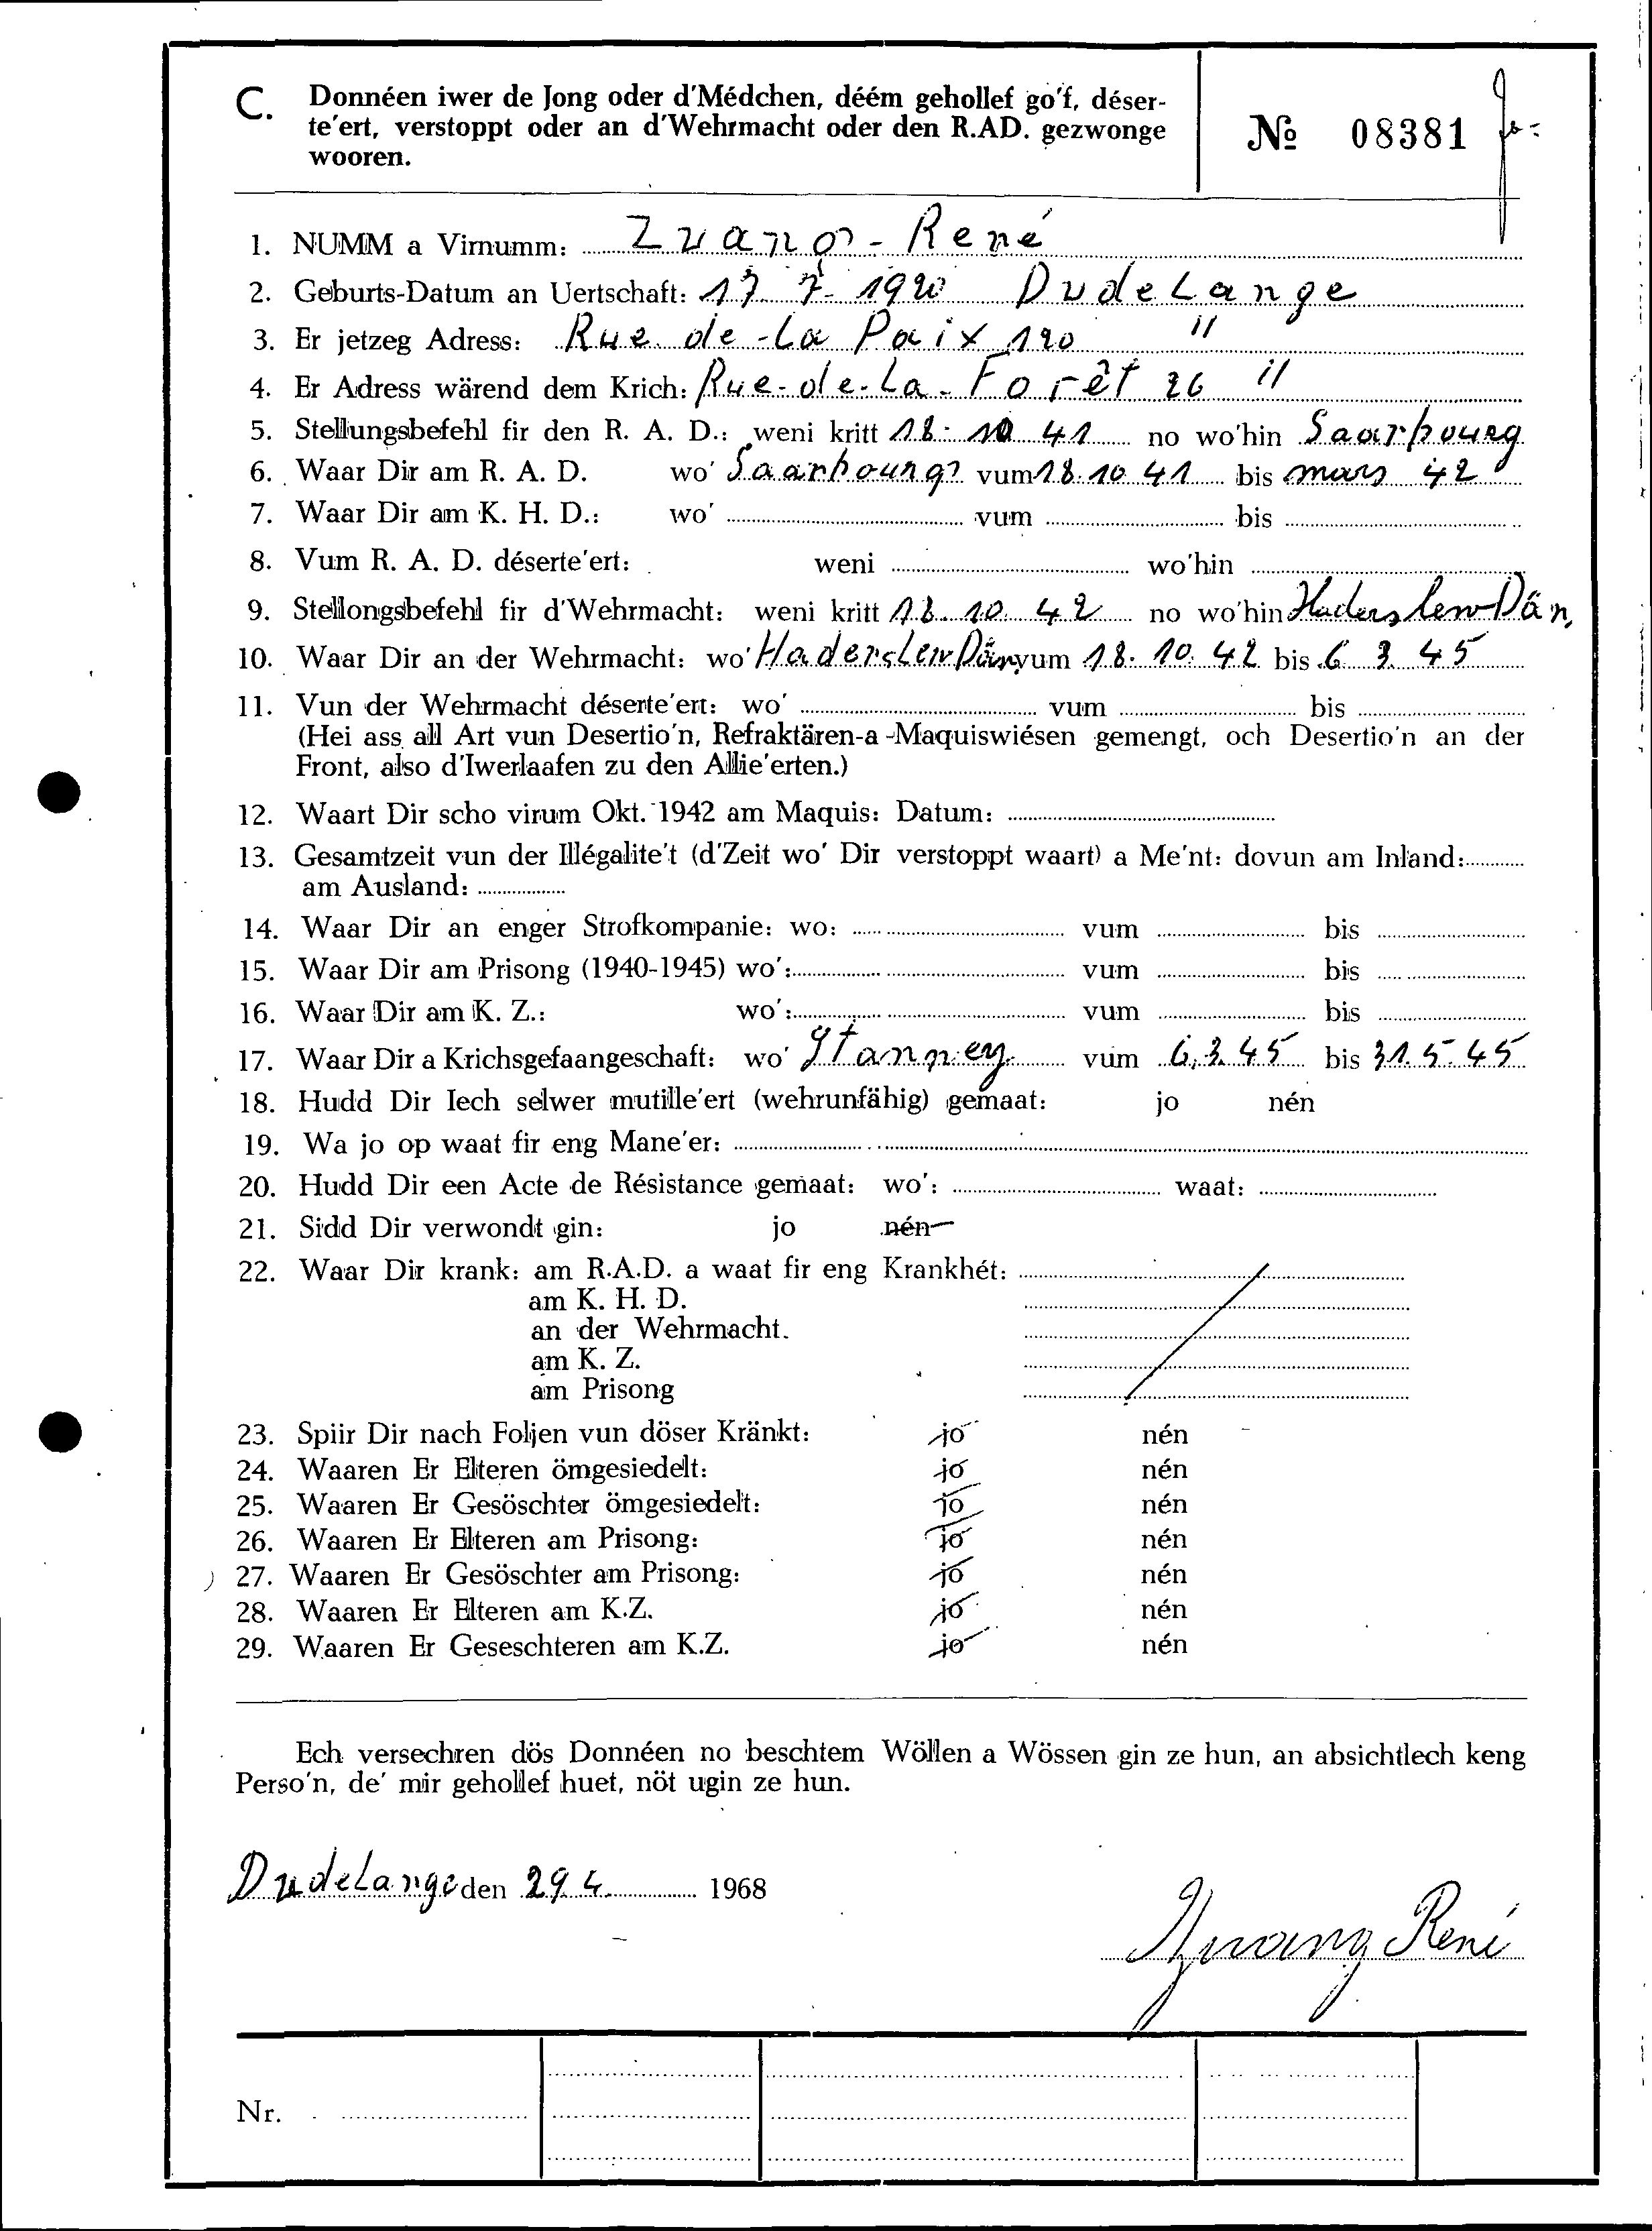 C. Donnéen iwer de Jong oder d'Médchen, déém gehollef go'f, déser-
te'ert, verstoppt oder an d'Wehrmacht oder den R.AD. gezwonge
wooren.
№ 08381
1. NUMM a Virnumm: Zuang - René
2. Geburts-Datum an Uertschaft: 17. 7. 1920 Dudelange
3. Er jetzeg Adress: Rue de-la Paix 120 "
4. Er Adress wärend dem Krich: Rue-de-la-Forêt 26 "
5. Stellungsbefehl fir den R. A. D.: weni kritt 18. 10 41 no wo'hin Saarbourg
6. Waar Dir am R. A. D. wo' Saarbourg vum 18.10 41 bis mars 42
7. Waar Dir am K. H. D.: wo' vum bis
8. Vum R. A. D. déserte'ert: weni wo'hin
9. Stellongsbefehl fir d'Wehrmacht: weni kritt 18. 10. 42 no wo'hin Haderslew Dän,
10. Waar Dir an der Wehrmacht: wo' Haderslew Dän, vum 18. 10. 42 bis 6 3. 45
11. Vun der Wehrmacht déserte'ert: wo' vum bis
(Hei ass all Art vun Desertio'n, Refraktären-a -Maquiswiésen gemengt, och Desertio'n an der
Front, also d'Iwerlaafen zu den Allie'erten.)
12. Waart Dir scho virum Okt. 1942 am Maquis: Datum:
13. Gesamtzeit vun der Illégalite't (d'Zeit wo' Dir verstoppt waart) a Me'nt: dovun am Inland:
am Ausland:
14. Waar Dir an enger Strofkompanie: wo: vum bis
15. Waar Dir am Prisong (1940-1945) wo': vum bis
16. Waar Dir am K. Z.: wo': vum bis
17. Waar Dir a Krichsgefaangeschaft: wo' vum 6.3.45 bis 31.5.45
18. Hudd Dir Iech selwer mutille'ert (wehrunfähig) gemaat: jo nén
19. Wa jo op waat fir eng Mane'er:
20. Hudd Dir een Acte de Résistance gemaat: wo': waat:
21. Sidd Dir verwondt gin: jo nén
22. Waar Dir krank: am R.A.D. a waat fir eng Krankhét:
am K. H. D.
an der Wehrmacht.
am K. Z.
am Prisong
23. Spiir Dir nach Foljen vun döser Kränkt: jo nén
24. Waaren Er Elteren ömgesiedelt: jo nén
25. Waaren Er Gesöschter ömgesiedelt: jo nén
26. Waaren Er Elteren am Prisong: jo nén
27. Waaren Er Gesöschter am Prisong: jo nén
28. Waaren Er Elteren am K.Z. jo nén
29. Waaren Er Geseschteren am K.Z. jo nén
Ech versechren dös Donnéen no beschtem Wöllen a Wössen gin ze hun, an absichtlech keng
Perso'n, de' mir gehollef huet, nöt ugin ze hun.
Dudelange den 29 4. 1968
Zuang René
Nr.